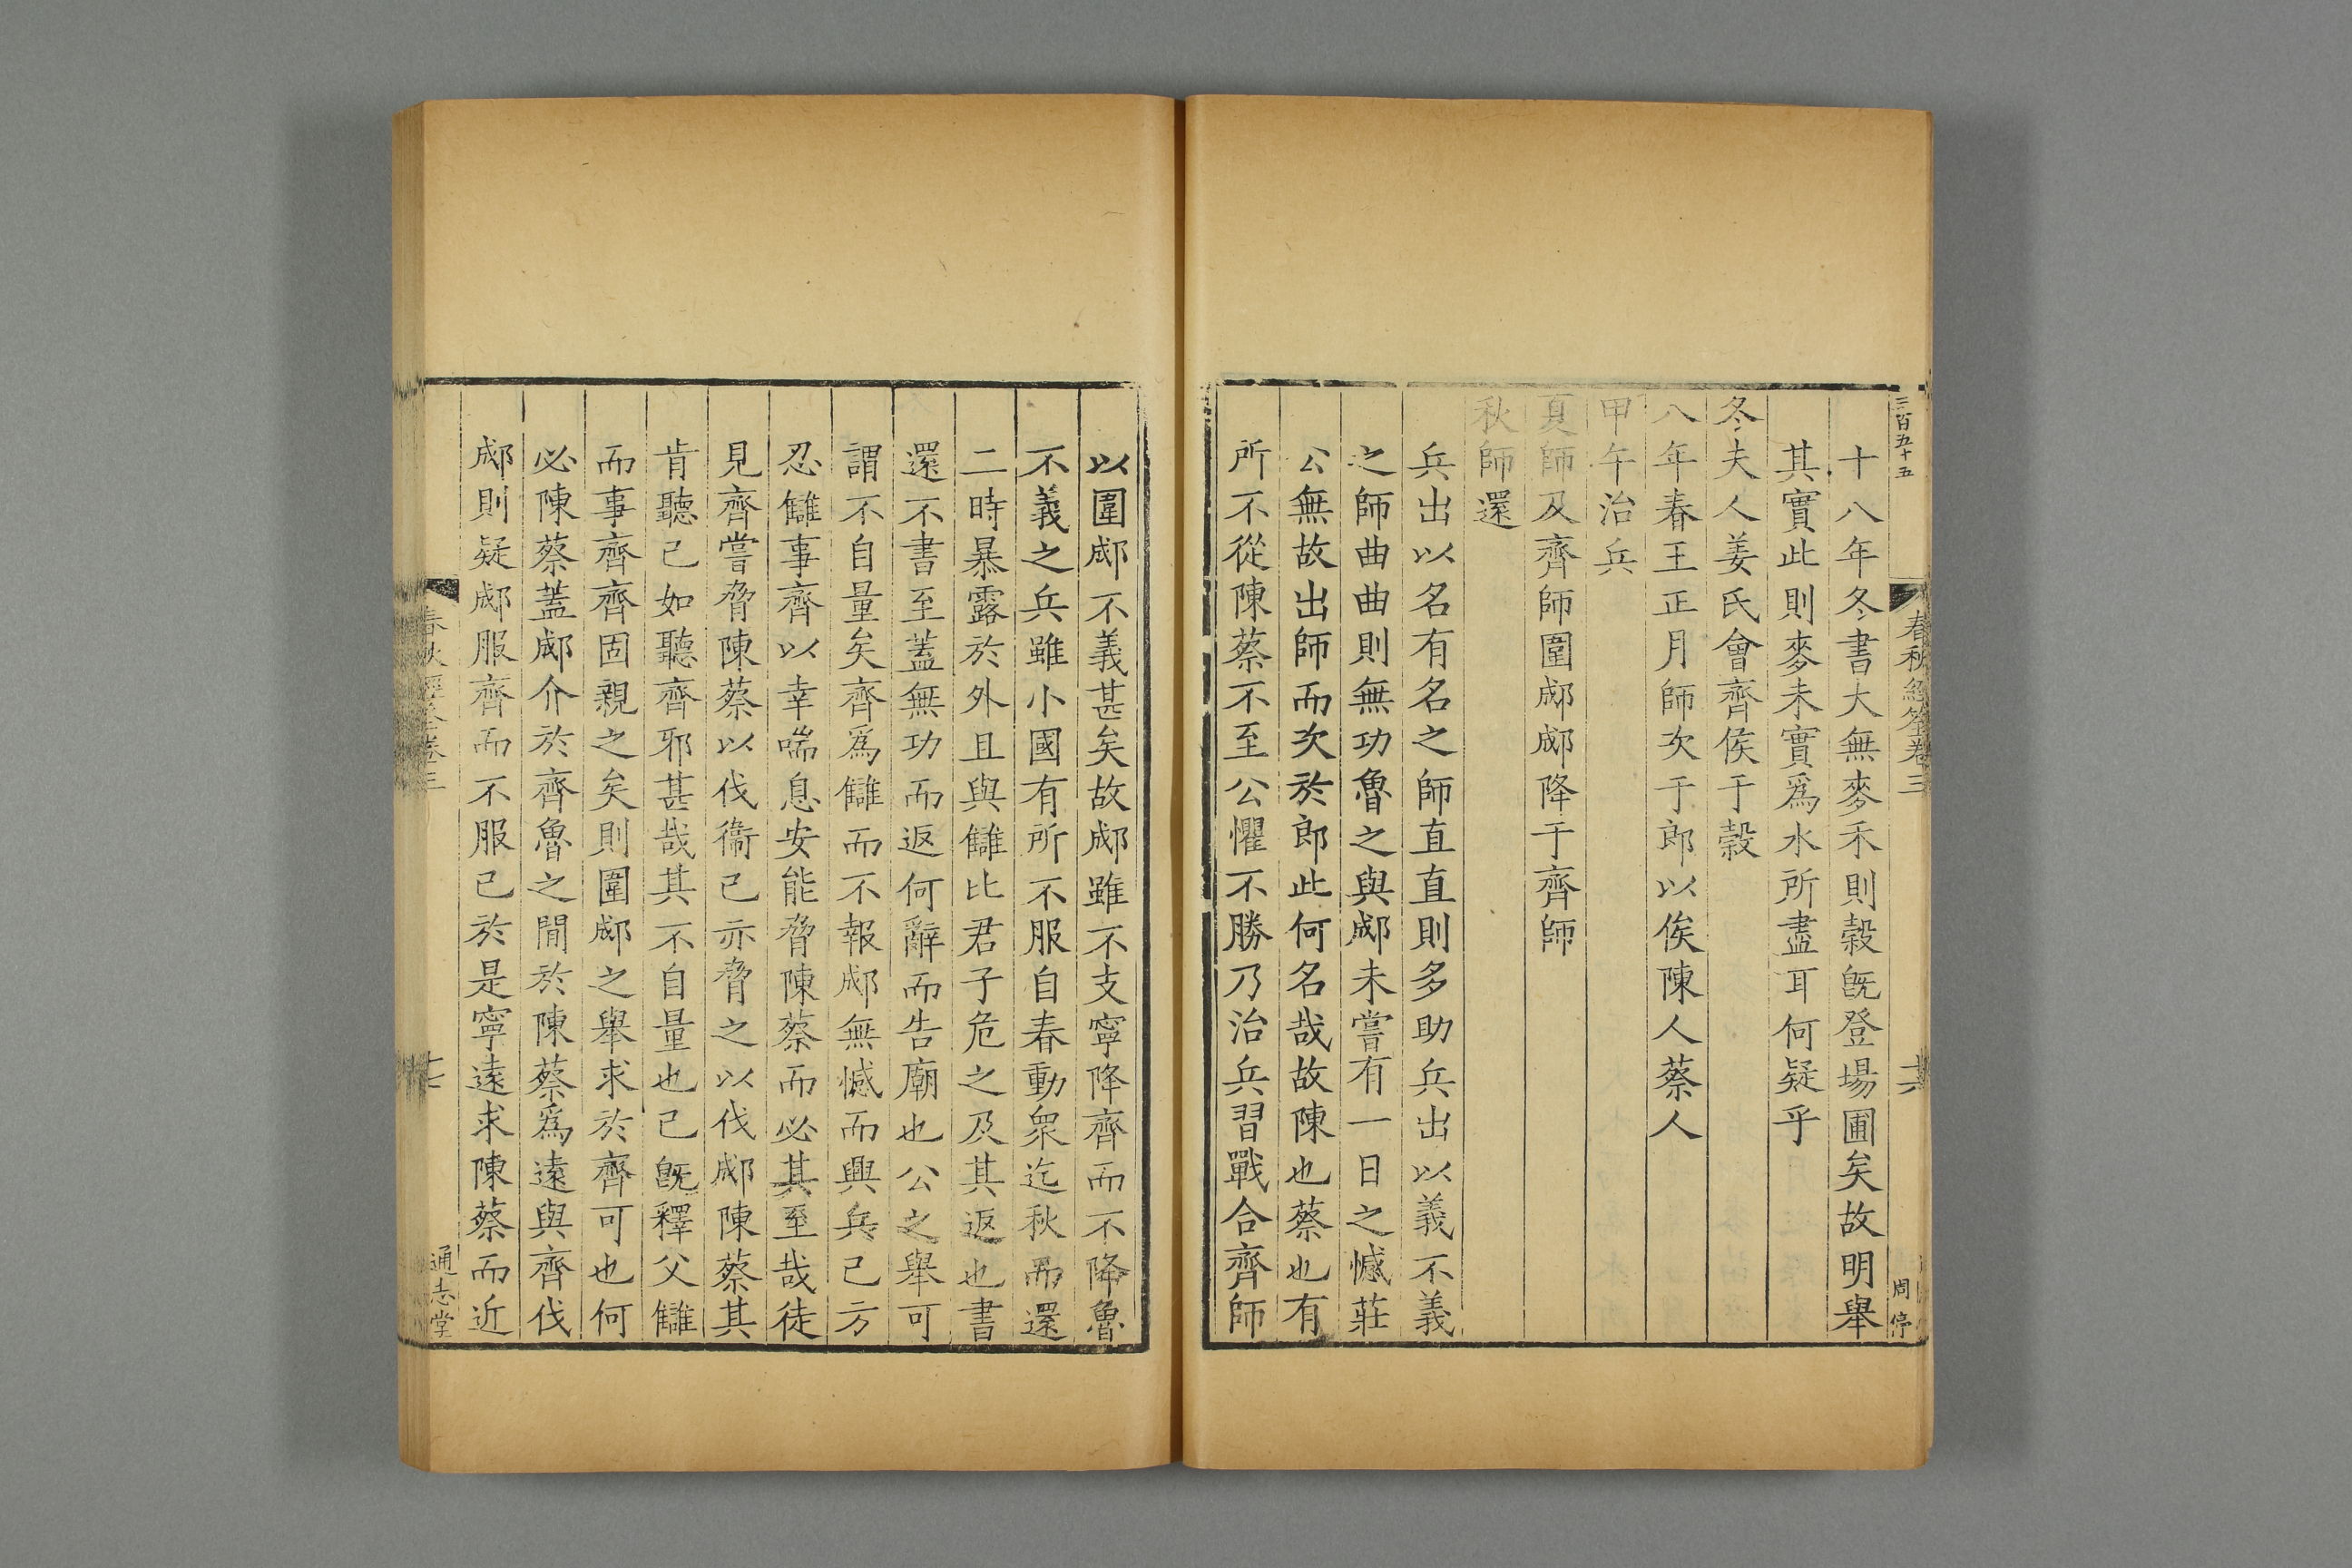 三百五十五
春秋經筌卷三
十六
周停
十八年冬書大無麥禾則穀旣登場圃矣故明舉
其實此則麥未實爲水所盡耳何疑乎
冬夫人姜氏會齊侯于穀
八年春王正月師次于郎以俟陳人蔡人
甲午治兵
夏師及齊師圍郕郕降于齊師
秋師還
兵出以名有名之師直直則多助兵出以義不義
之師曲曲則無功魯之與郕未嘗有一日之憾莊
公無故出師而次於郎此何名哉故陳也蔡也有
所不從陳蔡不至公懼不勝乃治兵習戰合齊師
以圍郕不義甚矣故郕雖不支寧降齊而不降魯
不義之兵雖小國有所不服自春動衆迄秋而還
二時暴露於外且與讎比君子危之及其返也書
還不書至蓋無功而返何辭而告廟也公之舉可
謂不自量矣齊爲讎而不報郕無憾而興兵已方
忍讎事齊以幸喘息安能脅陳蔡而必其至哉徒
見齊嘗脅陳蔡以伐衞已亦脅之以伐郕陳蔡其
肯聽己如聽齊邪甚哉其不自量也已旣釋父讎
而事齊齊固親之矣則圍郕之舉求於齊可也何
必陳蔡蓋郕介於齊魯之閒於陳蔡爲遠與齊伐
郕則疑郕服齊而不服已於是寧遠求陳蔡而近
春秋經筌卷三
十七
通志堂